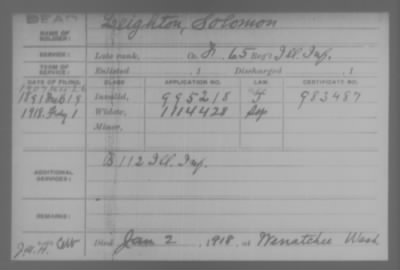 DEAD
NAME OF SOLDIER: Leighton, Solomon
SERVICE: Late rank, Co. H, 65 Reg't Ill. Inf.
TERM OF SERVICE: Enlisted , 1 Discharged , 1
DATE OF FILING. CLASS. APPLICATION NO. LAW. CERTIFICATE NO.
1891 Invalid, 995218 983487
1918. Widow, 1114428 Sep
Minor,
ADDITIONAL SERVICES: B 112 Ill. Inf.
REMARKS:
Died Jan 2, 1918, at Wenatchee Wash